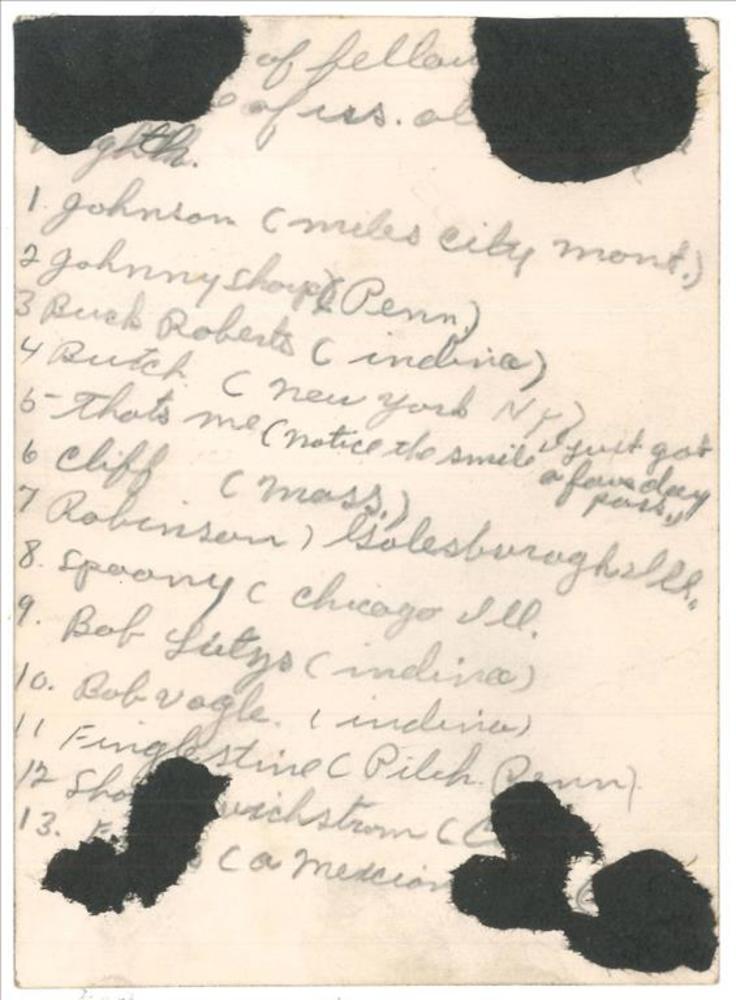 of fellow
of iss. al
ghth.
1. Johnson (miles city mont.)
2 Johnny Sharp (Penn.)
3 Buck Roberts (indina)
4 Butch (new york NY)
5- Thats me (notice the smile, just got
a four day
pass,,
6 Cliff (mass.)
7 Robinson) Galesburough Ill.
8. Spoony ( chicago Ill.
9. Bob (indina)
10. Bob Vogle. (indina)
11 Finglestine (Pibh. Penn)
12 Sho wichstrom (C
13. F s (a Mexcian